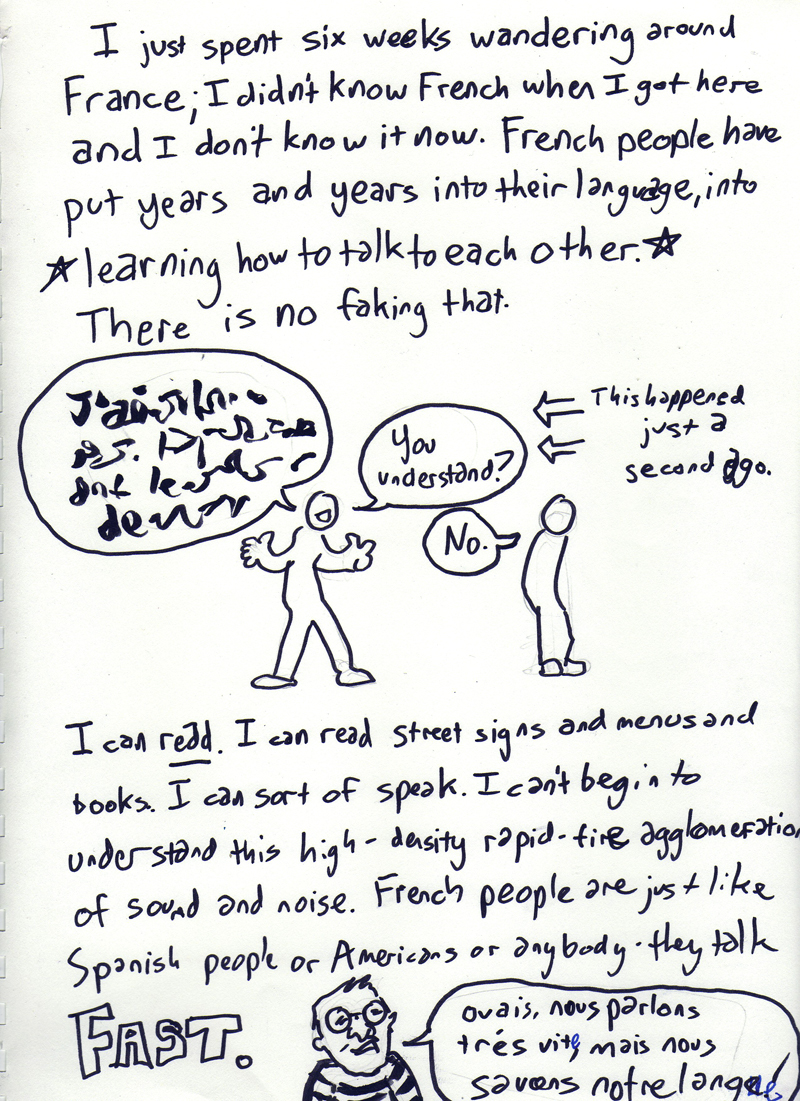 I just spent six weeks wandering around
France; I didn't know French when I got here
and I don't know it now. French people have
put years and years into their language, into
☆learning how to talk to each other.☆
There is no faking that.
You
understand?
No.
This happened
just a
second ago.
I can read. I can read street signs and menus and
books. I can sort of speak. I can't begin to
understand this high-density rapid-fire agglomeration
of sound and noise. French people are just like
Spanish people or Americans or anybody - they talk
FAST.
ouais, nous parlons
trés vite, mais nous
savons notre langue!